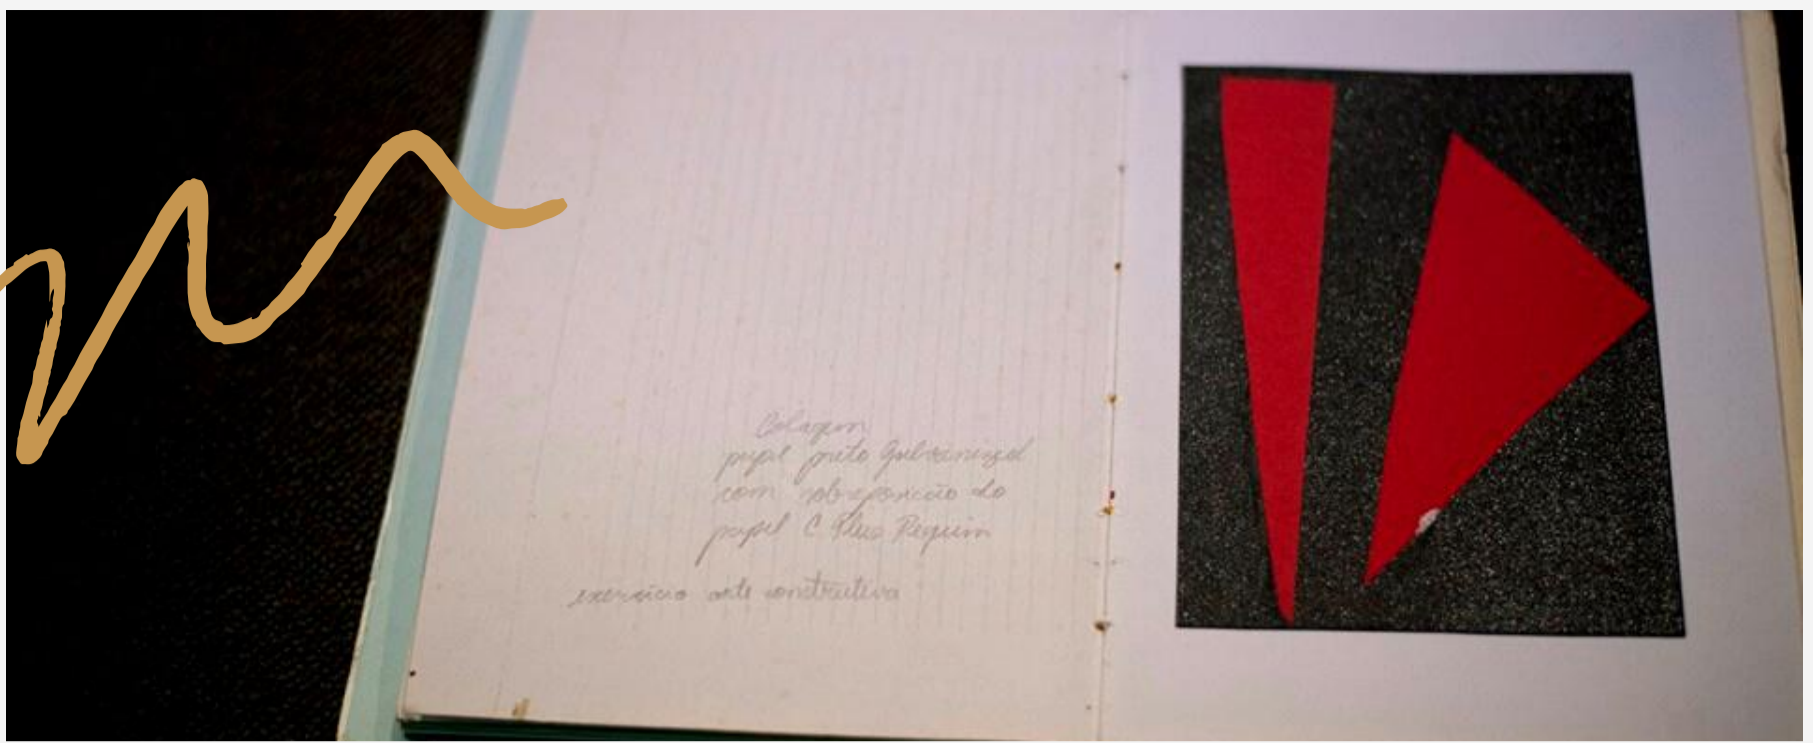 Colagem
papel preto Galvanizado
com sobreposição do
papel C
exercício arte construtiva